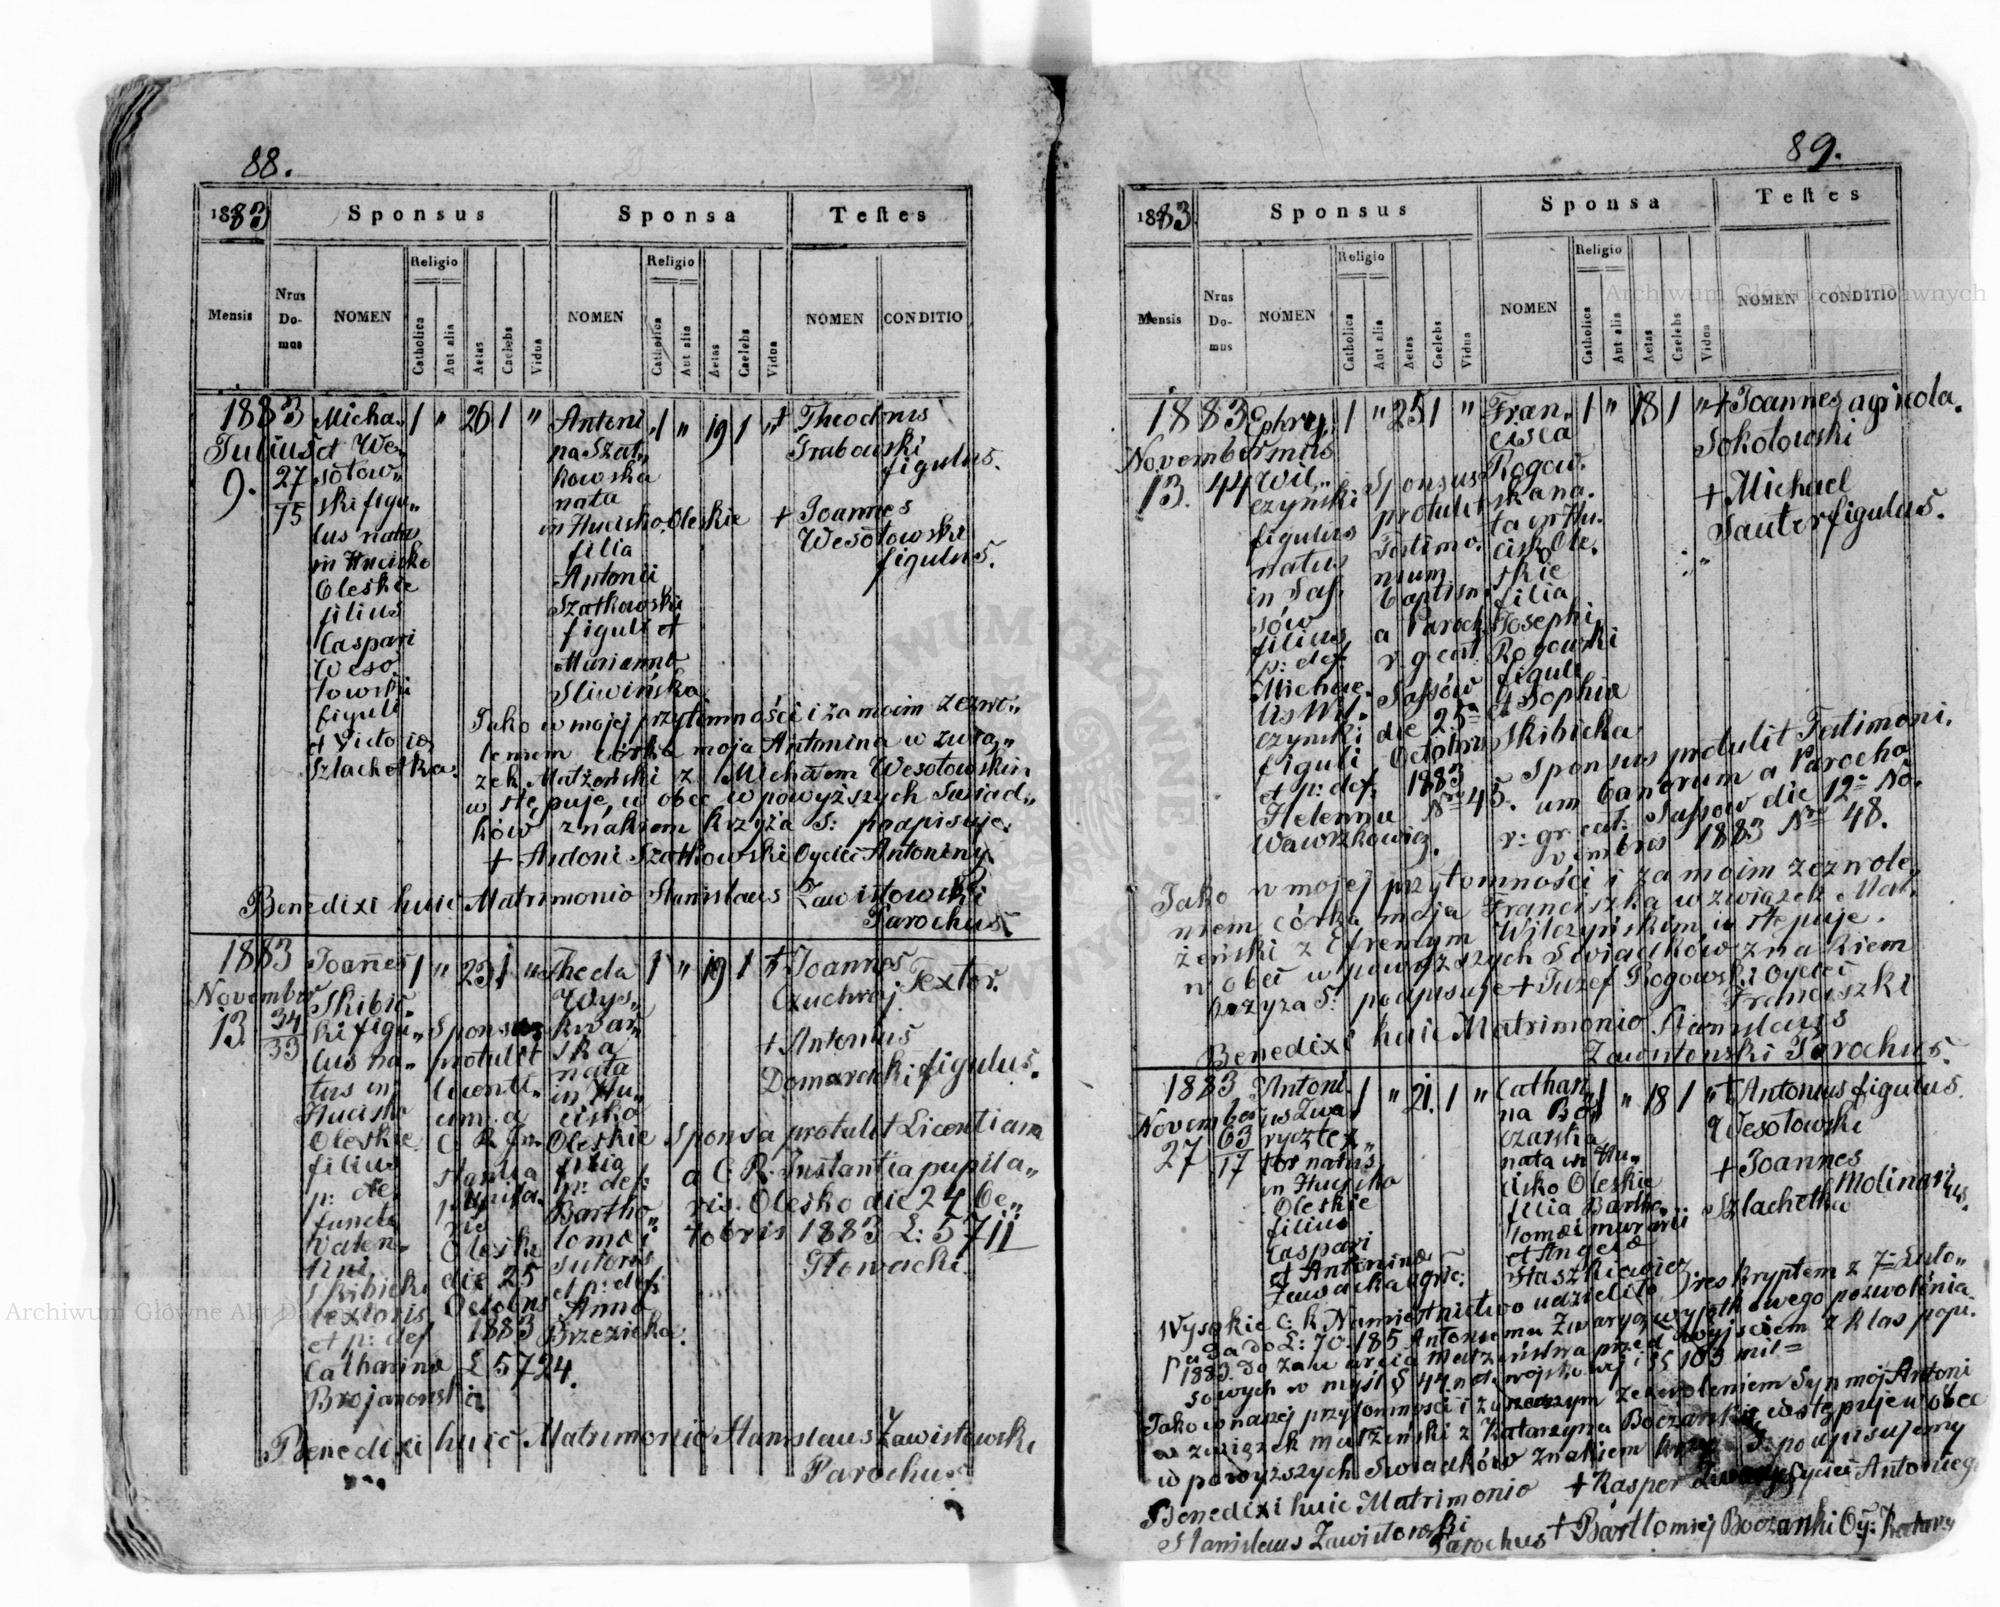 88.
1883
Sponsus
Sponsa
Testes
Mensis
Nrus Do- mus
NOMEN
Religio
Catholica
Aut alia
Aetas
Caelebs
Vidua
NOMEN
Religio
Catholica
Aut alia
Aetas
Caelebs
Vidua
NOMEN
CONDITIO
1883
Julius
9.
27
75
Micha„
el We„
sołow„
ski figu„
lus natus
in Hucisko
Oleskie
filius
Caspari
Weso„
łowski
figuli
et Victoria
Szlachetka.
1 „ 26 1 „
Antoni
na Szat„
kowska
nata
in Hucisko Oleskie
filia
Antonii
Szatkowski
figuli et
Marianna
Sliwińska
1 „ 19 1 „
+ Theodorus
Grabowski
figulus.
+ Joannes
Wesołowski
figulus.
Jako w mojej przytomności i za moim zezwo„
leniem córka moja Antonina w zwią„
zek Małżeński z Michałem Wesołowskim
w stępuje, w obec w powyższych Swiad„
ków znakiem krzyża S: podpisuje.
+ Antoni Szatkowski Oyciec Antoniny.
Benedixi huic Matrimonio Stanislaus Zawistowski
Parochus
1883
November
13.
34
33
Joannes
Skibic„
ki figu„
lus na„
tus in
Hucisko
Oleskie
filius
p: de„
functi
Valen„
tini
Skibicki
textoris
et p: def
Catharina
Brojanowska
1 „ 23 1 „
Sponsus
protulit
licenti„
am a
C. R. In„
stantia
pupila„
ris
Olesko
die 25
Octobris
1883
Ł 5724.
Theda
Wys„
kwar„
ska
nata
in Hu„
cisko
Oleskie
filia
p: def:
Bartho„
lomei
sutoris
et p: def:
Anna
Brzezicka.
1 „ 19 1 „
+ Joannes
Czuchraj Textor.
+ Antonius
Domaracki figulus.
Sponsa protulit Licentiam
a C. R. Instantia pupila„
ris. Olesko die 24 Oc„
tobris 1883 Ł: 5711
Głowacki.
Benedixi huic Matrimonio Stanislaus Zawistowski
Parochus
89.
1883.
Sponsus
Sponsa
Testes
Mensis
Nrus Do- mus
NOMEN
Religio
Catholica
Aut alia
Aetas
Caelebs
Vidua
NOMEN
Religio
Catholica
Aut alia
Aetas
Caelebs
Vidua
NOMEN
CONDITIO
1883
November
13.
44
Ephre„
mus
Wil„
czyński
figulus
natus
in Sas„
sów
filius
p: def
Michae„
lis Wil„
czyński
figuli
et p: def:
Helenna
Wawrzkowicz.
1 „ 25 1 „
Sponsus
protulit
Testimo„
nium
baptism
a Paroch
r. g. cat.
Sassów
die 25a
Octobris
1883
Nro 45.
Fran„
cisca
Rogow„
ska na„
ta in Hu„
cisko Ole„
skie
filia
Josephi
Rogowski
figuli
et Sophia
Skibicka
1 „ 18 1 „
+ Joannes agricola.
Sokołowski
+ Michael
Sauter figulus.
Sponsus protulit Testimoni„
um banorum a Parocho
r: gr. cat. Sassow die 12a No„
vembris 1883 Nro 48.
Jako w mojej przytomności i za moim zezwole„
niem córka moja Franciszka w związek Mał„
żeński z Efremym Wilczyńskim w stępuje.
w obec w powyższych Swiadków znakiem
krzyża S: podpisuje + Józef Rogowski Oyciec
Franciszki
Benedixi huic Matrimonio Stanislaus
Zawistowski Parochus.
1883
November
27
63
17
Antoni„
us Zwa„
rycz tex„
tor natus
in Hucisko
Oleskie
filius
Caspari
et Antonina
Zawacka agric:
1 „ 21. 1 „
Cathari„
na Bo„
czarska
nata in Hu„
cisko Oleskie
filia Bartho„
lomæi murarii
et Angela
Staszkiewicz
1 „ 18 1 „
+ Antonius figulus.
Wesołowski
+ Joannes
Szlachetka Molinarius.
Wysokie C: k Namiestnictwo udzieliło reskryptem z 7= Listo„
pada do Ł: 70.185 Antoniemu Zwarycz wyjątkowego pozwolenia
1883. do zawarcia małżeństwa przed wyjściem z klas popi„
sowych w myśl § 44. ust. wojskowej i §§ 103 mil=
Jako w naszej przytomności i za naszym zezwoleniem Syn mój Antoni
w związek małżeński z Katarzyna Boczarska wstępuje w obec
w powyższych Swiadków znakiem krzyża S: podpisujemy
+ Kasper Zwarycz Oyciec Antoniego
Benedixi huic Matrimonio
Stanislaus Zawistowski
Parochus
+ Bartłomiej Boczarski Oy:
Archiwum Główne Akt Dawnych
Archiwum Główne Akt Dawnych